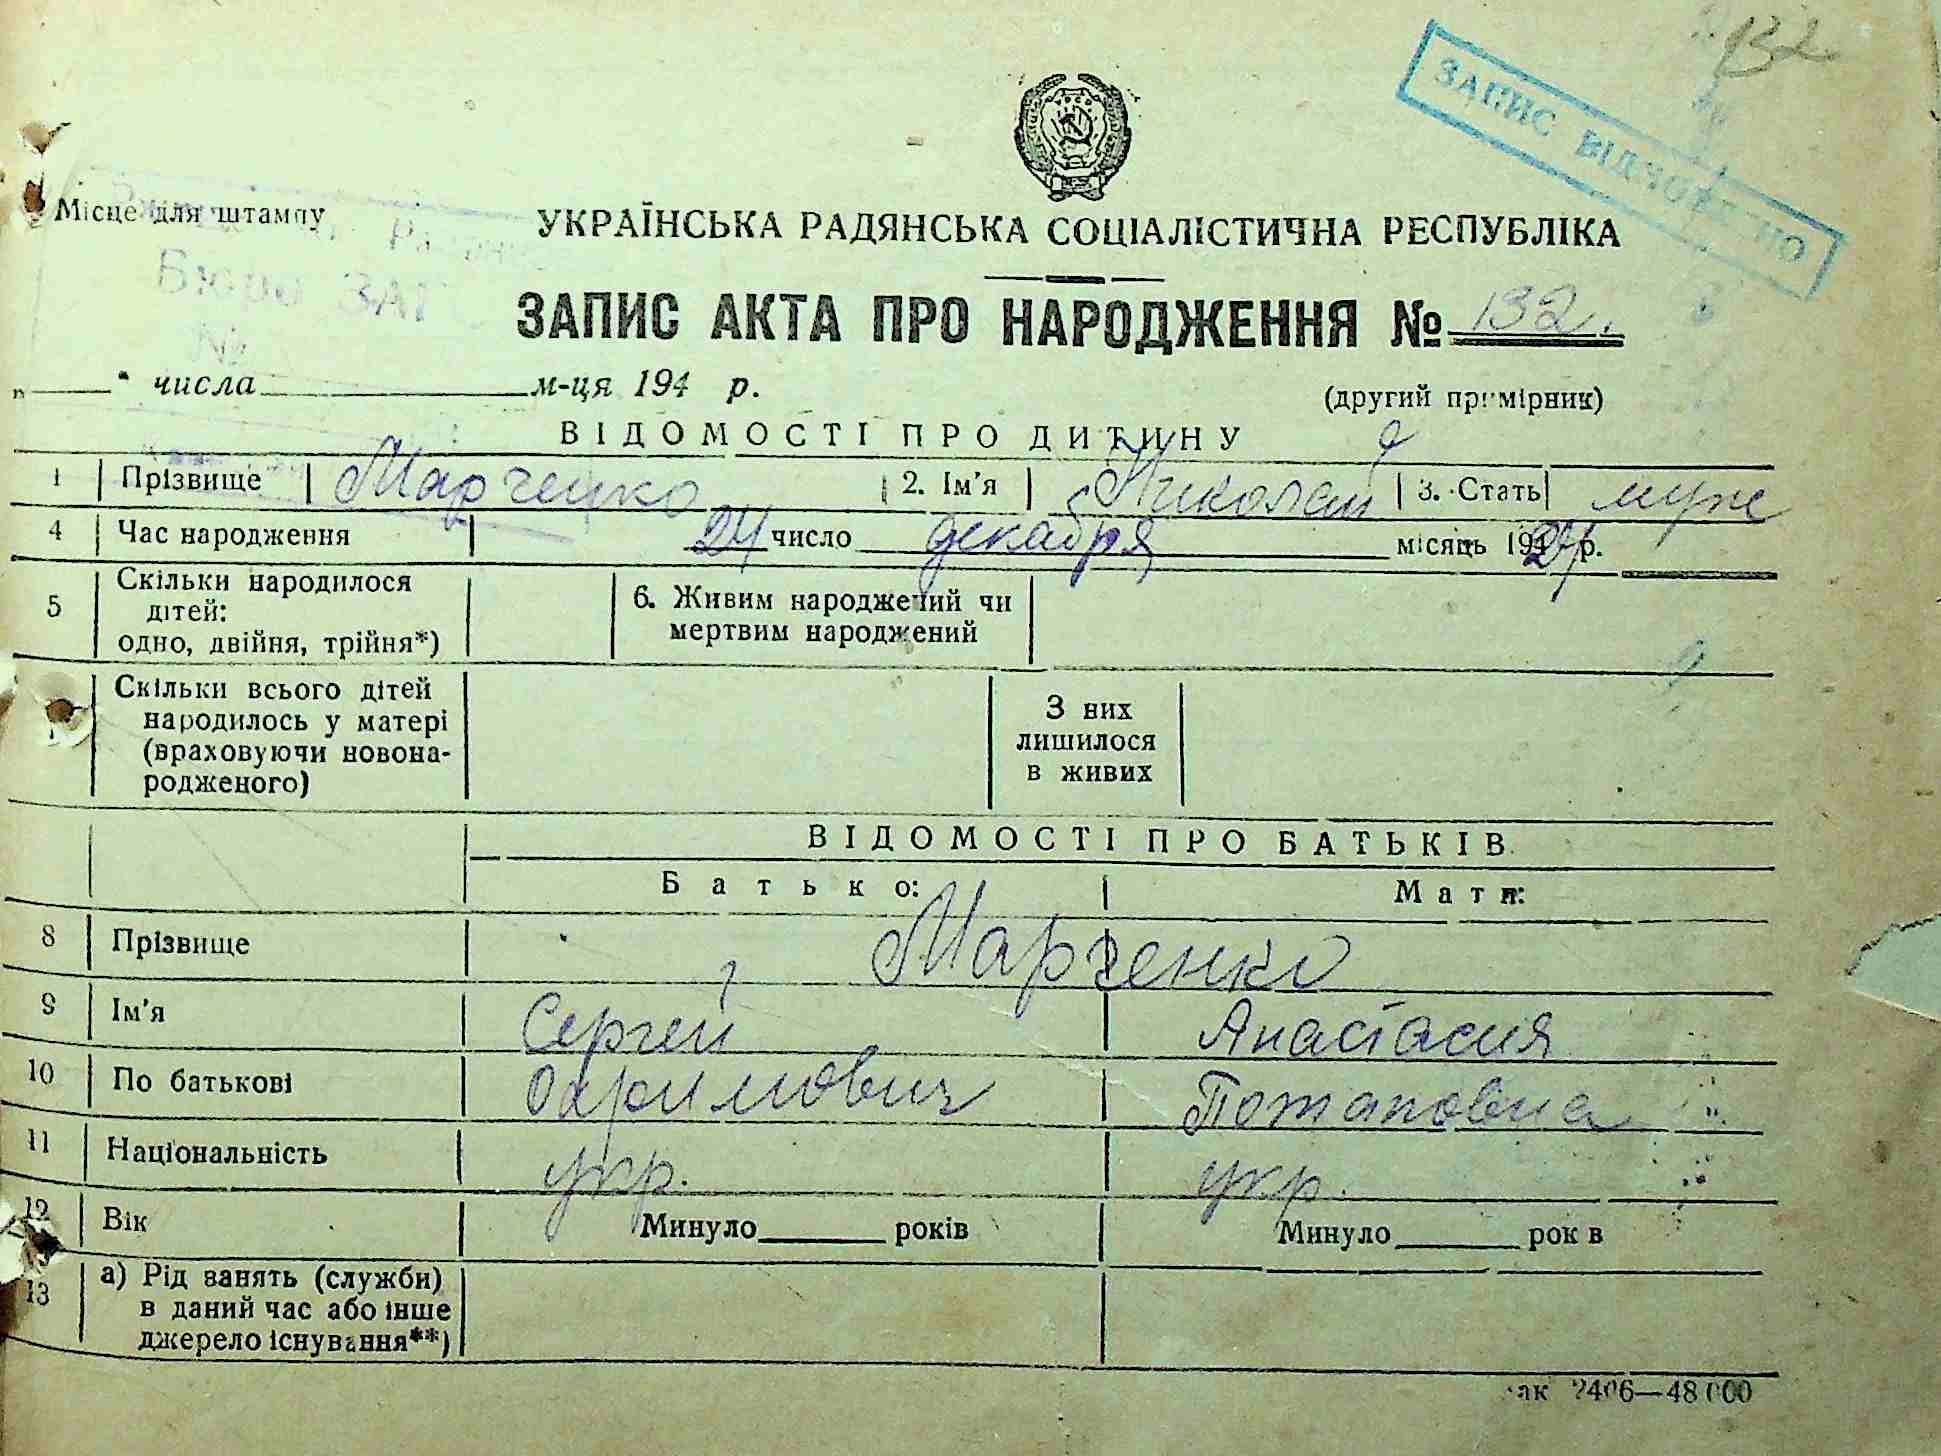 132
ЗАПИС ВІДНОВЛЕНО
Місце для штампу
Бюро ЗАГС
№
УКРАЇНСЬКА РАДЯНСЬКА СОЦІАЛІСТИЧНА РЕСПУБЛІКА
ЗАПИС АКТА ПРО НАРОДЖЕННЯ № 132.
„ “ числа м-ця 194 р. (другий примірник)
ВІДОМОСТІ ПРО ДИТИНУ
1 Прізвище Марченко 2. Ім'я Николай 3. Стать муж
4 Час народження 24 число декабря місяць 1927 р.
5 Скільки народилося дітей: одно, двійня, трійня*) 6. Живим народжений чи мертвим народжений
Скільки всього дітей народилось у матері (враховуючи новонародженого) З них лишилося в живих
ВІДОМОСТІ ПРО БАТЬКІВ
Батько: Мати:
8 Прізвище Марченко
9 Ім'я Сергей Анастасия
10 По батькові Охримович Потаповна
11 Національність укр. укр.
12 Вік Минуло років Минуло рок в
13 а) Рід занять (служби) в даний час або інше джерело існування**)
ак 2406—48 000